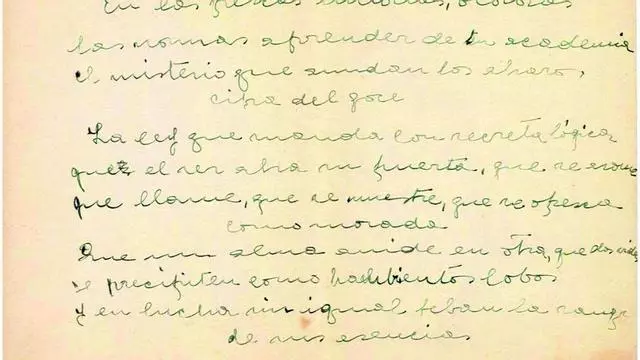 En las
las normas aprender de tu academia
el misterio que anudan los
cifra del goce
La ley que manda con secreta lógica
que el ser abra su puerta, que se asome
que llame, que se muestre, que se ofrezca
como morada
Que un alma anide en otra, que dos vidas
se precipiten como hambrientos lobos
y en lucha sin igual beban la sangre
de sus esencias